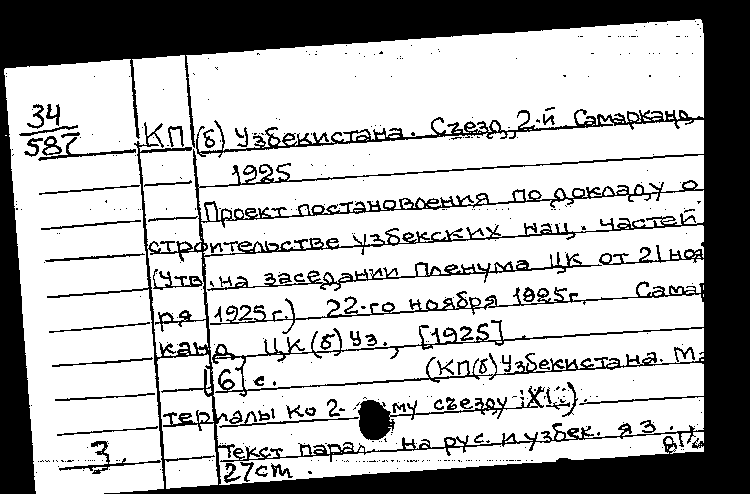 34
587
КП(б) Узбекистана. Съезд, 2-й Самарканд.
1925
Проект постановления по докладу о
строительстве узбекских нац. частей
(Утв. на заседании пленума ЦК от 21 ноя
ря 1925 г.) 22-го ноября 1925 г. Самар
канд, ЦК(б) Уз., [1925].
[6] с. (КП(б) Узбекистана. Ма
териалы ко 2-му съезду
Текст парал. на рус. и узбек. яз.
3.
27 cm.